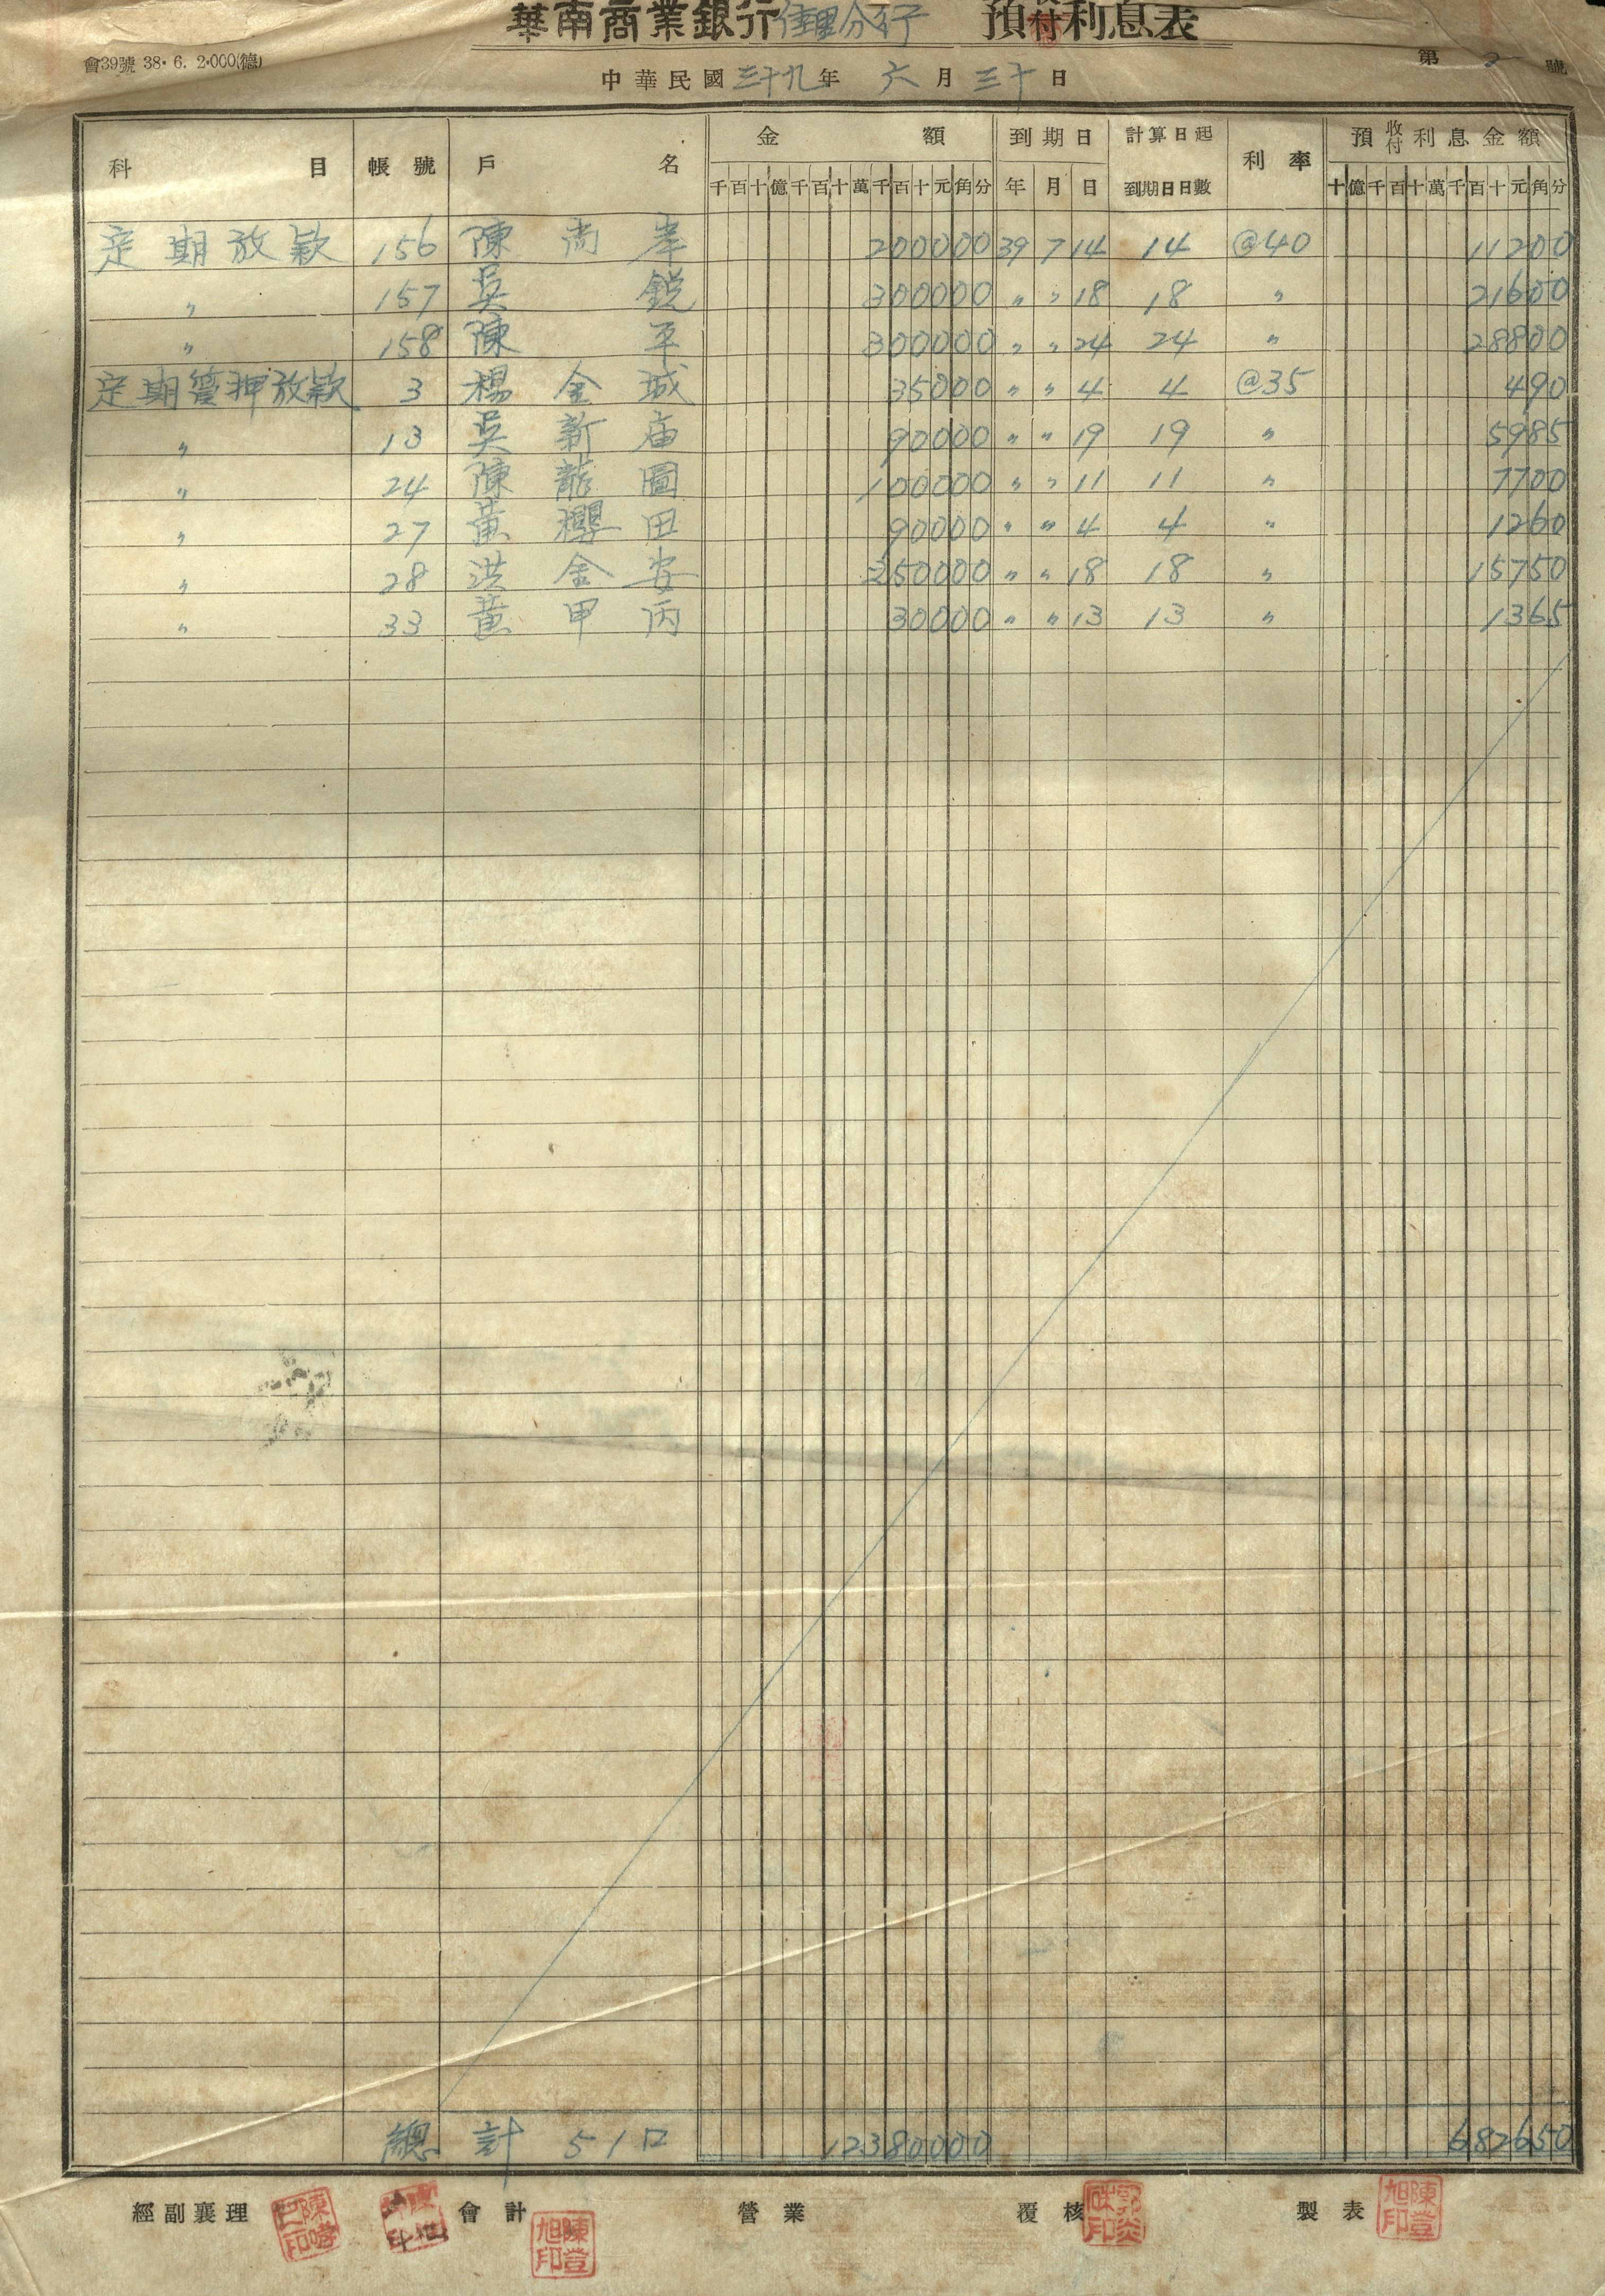 華南商業銀行佳里分行 預收付利息表
會39號 38.6.2.000(德)
中華民國三十九年 六月三十日
第 2 號
科目 帳號 戶名 金額 到期日 計算日起 利率 預收付利息金額
千百十億千百十萬千百十元角分 年月日 到期日日數 十億千百十萬千百十元角分
定期放款 156 陳尚岸 200000 39 7 14 14 @40 11200
〃 157 吳銳 300000 〃 〃 18 18 〃 21600
〃 158 陳平 300000 〃 〃 24 24 〃 28800
定期質押放款 3 楊金城 35000 〃 〃 4 4 @35 490
〃 13 吳新庙 90000 〃 〃 19 19 〃 5985
〃 24 陳龍圖 100000 〃 〃 11 11 〃 7700
〃 27 黃櫻田 90000 〃 〃 4 4 〃 1260
〃 28 洪金安 250000 〃 〃 18 18 〃 15750
〃 33 黃甲丙 30000 〃 〃 13 13 〃 1365
總計 51口 12380000 682650
經副襄理 會計 陳登旭印 營業 覆核 製表 陳登旭印